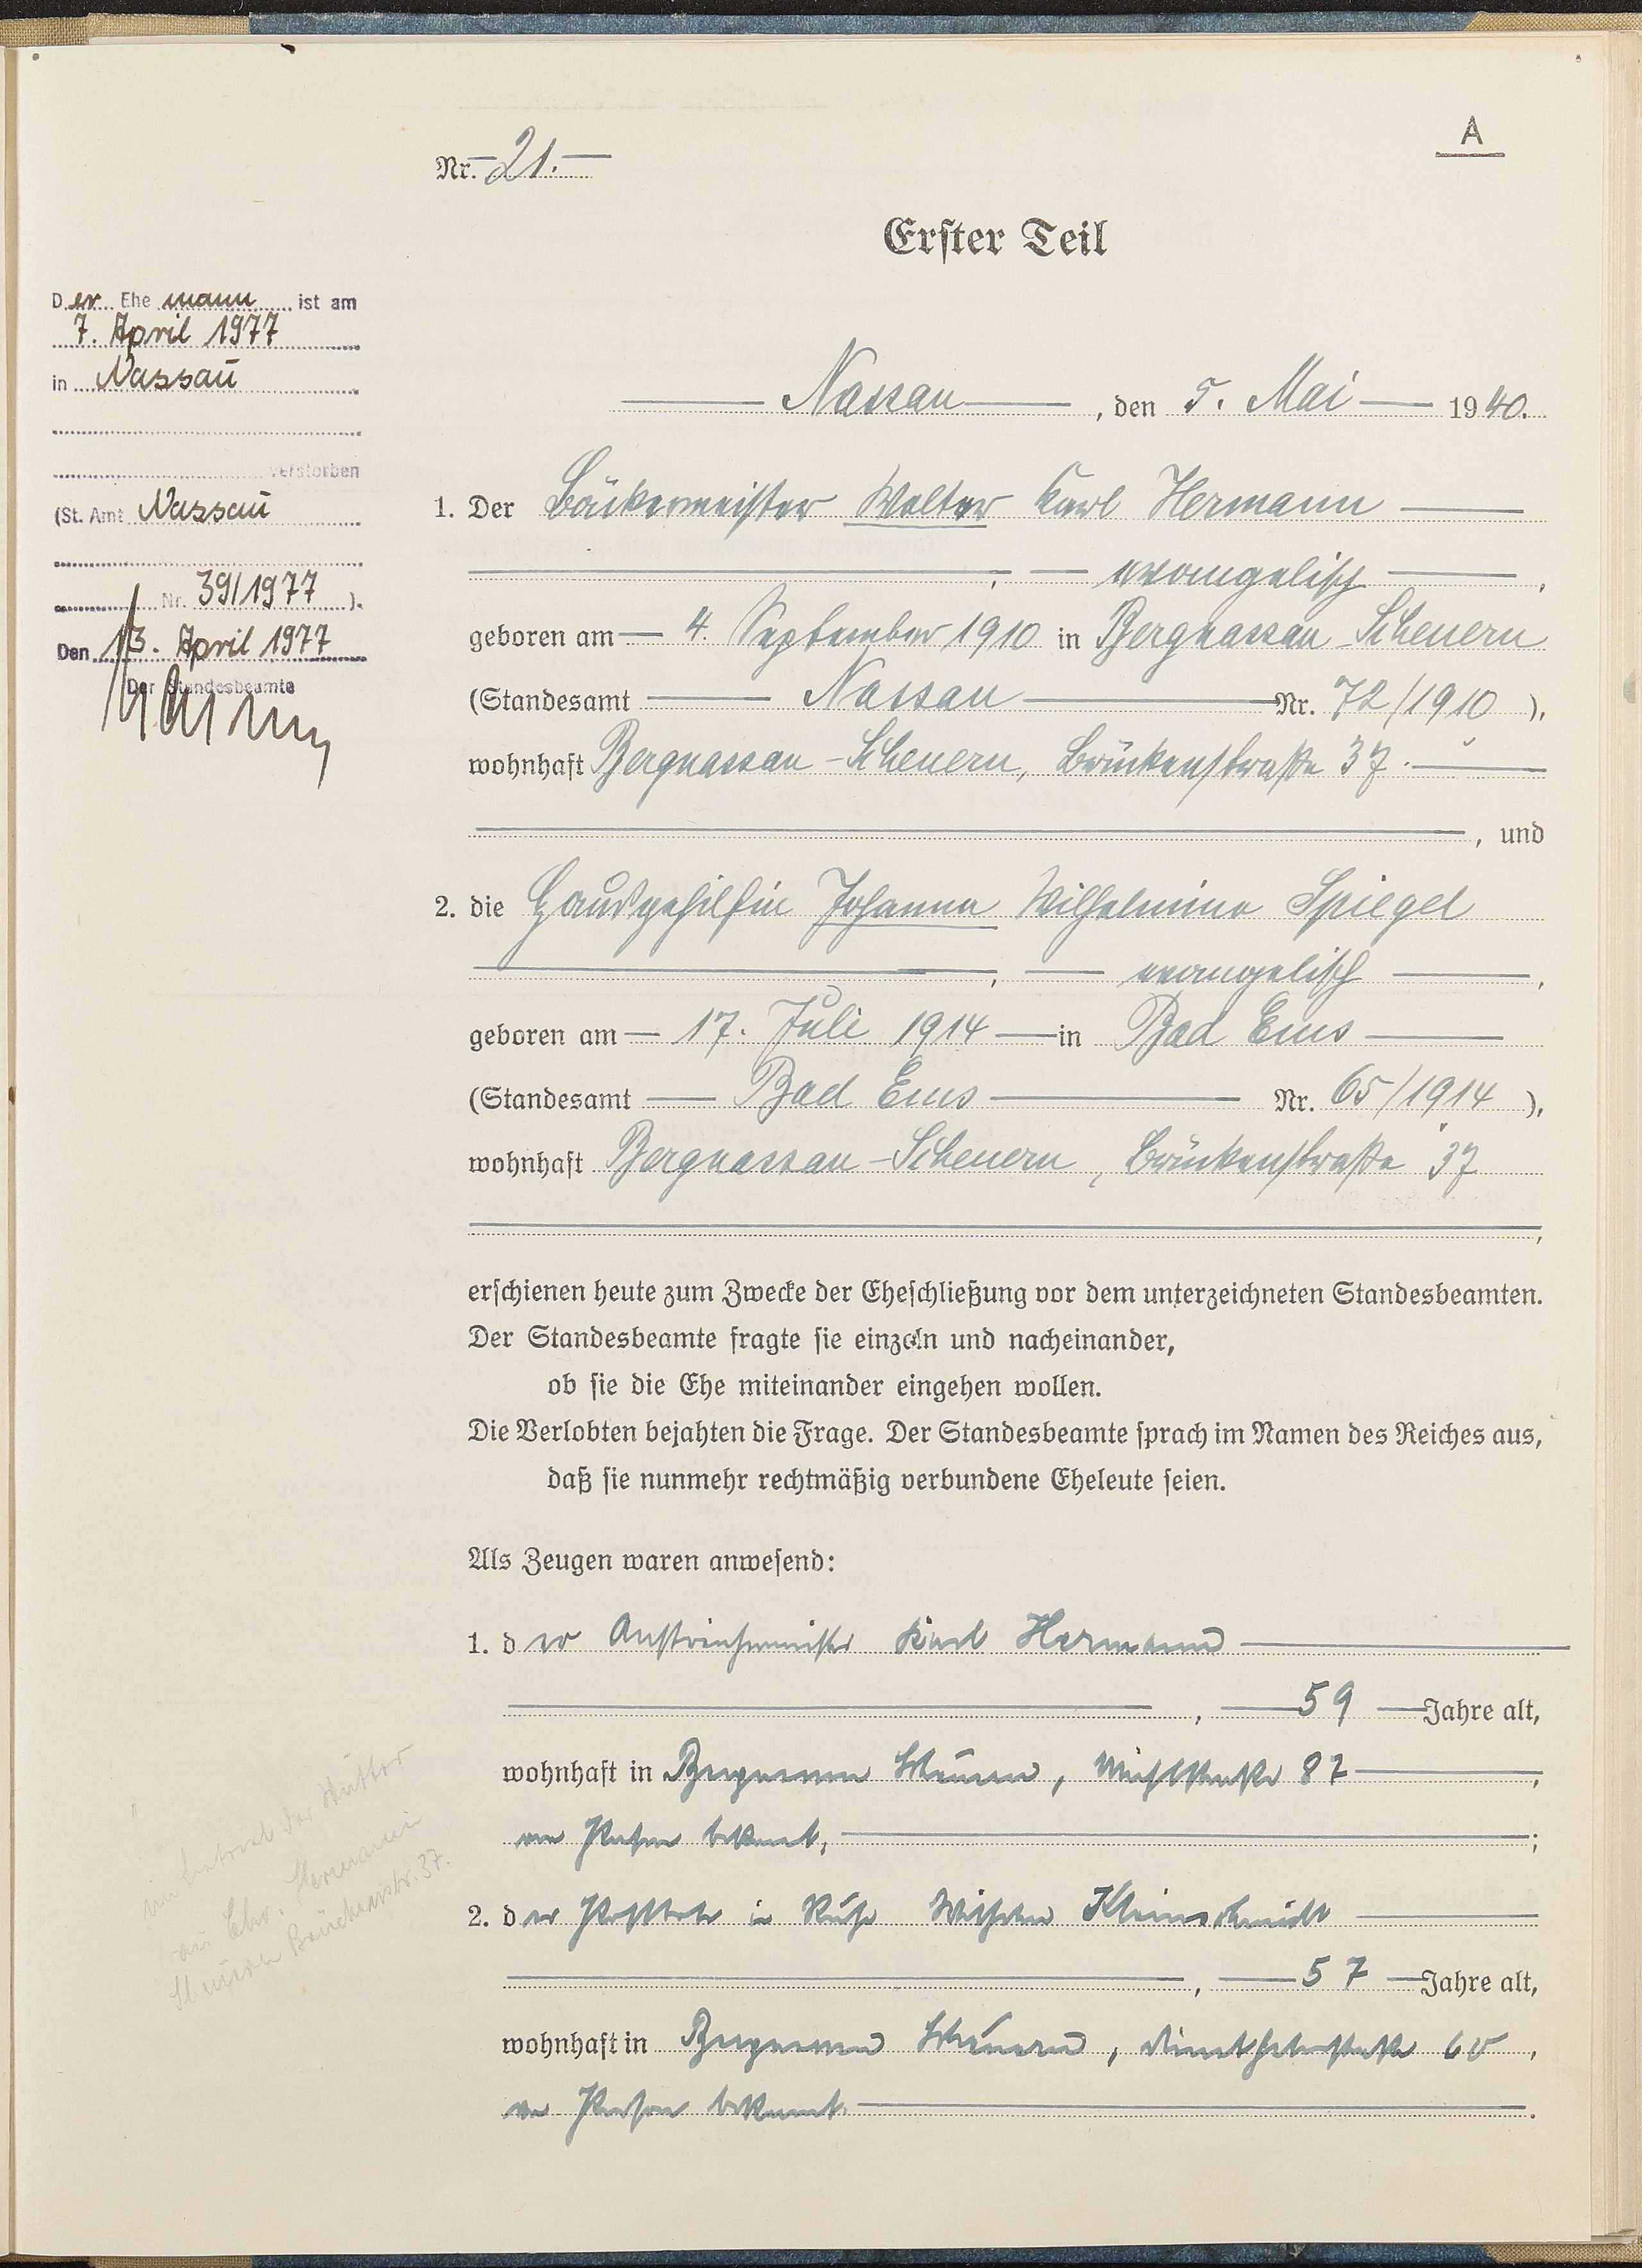 A
Nr. 21.
Erster Teil
Der Ehemann ist am
7. April 1977
in Nassau
verstorben
(St. Amt Nassau
Nr. 39/1977 ).
Den 13. April 1977
Der Standesbeamte
Nassau, den 5. Mai 1940.
1. Der Bäckermeister Walter Karl Hermann
, evangelisch,
geboren am 4. September 1910 in Bergnassau-Scheuern
(Standesamt Nassau Nr. 72/1910 ),
wohnhaft Bergnassau-Scheuern, Brückenstraße 37.
, und
2. die Hausgehilfin Johanna Wilhelmine Spiegel
, evangelisch,
geboren am 17. Juli 1914 in Bad Ems
(Standesamt Bad Ems Nr. 65/1914 ),
wohnhaft Bergnassau-Scheuern, Brückenstraße 37
,
erschienen heute zum Zwecke der Eheschließung vor dem unterzeichneten Standesbeamten.
Der Standesbeamte fragte sie einzeln und nacheinander,
ob sie die Ehe miteinander eingehen wollen.
Die Verlobten bejahten die Frage. Der Standesbeamte sprach im Namen des Reiches aus,
daß sie nunmehr rechtmäßig verbundene Eheleute seien.
Als Zeugen waren anwesend:
1. der Anstreichermeister Karl Hermann
, 59 Jahre alt,
wohnhaft in Bergnassau Scheuern, 87,
von Person bekannt,;
2. der in Ruhe Wilhelm Kleinschmidt
, 57 Jahre alt,
wohnhaft in Bergnassau Scheuern, ,
von Person bekannt.
der Mutter
Hermann
Scheuern Brückenstr. 37.